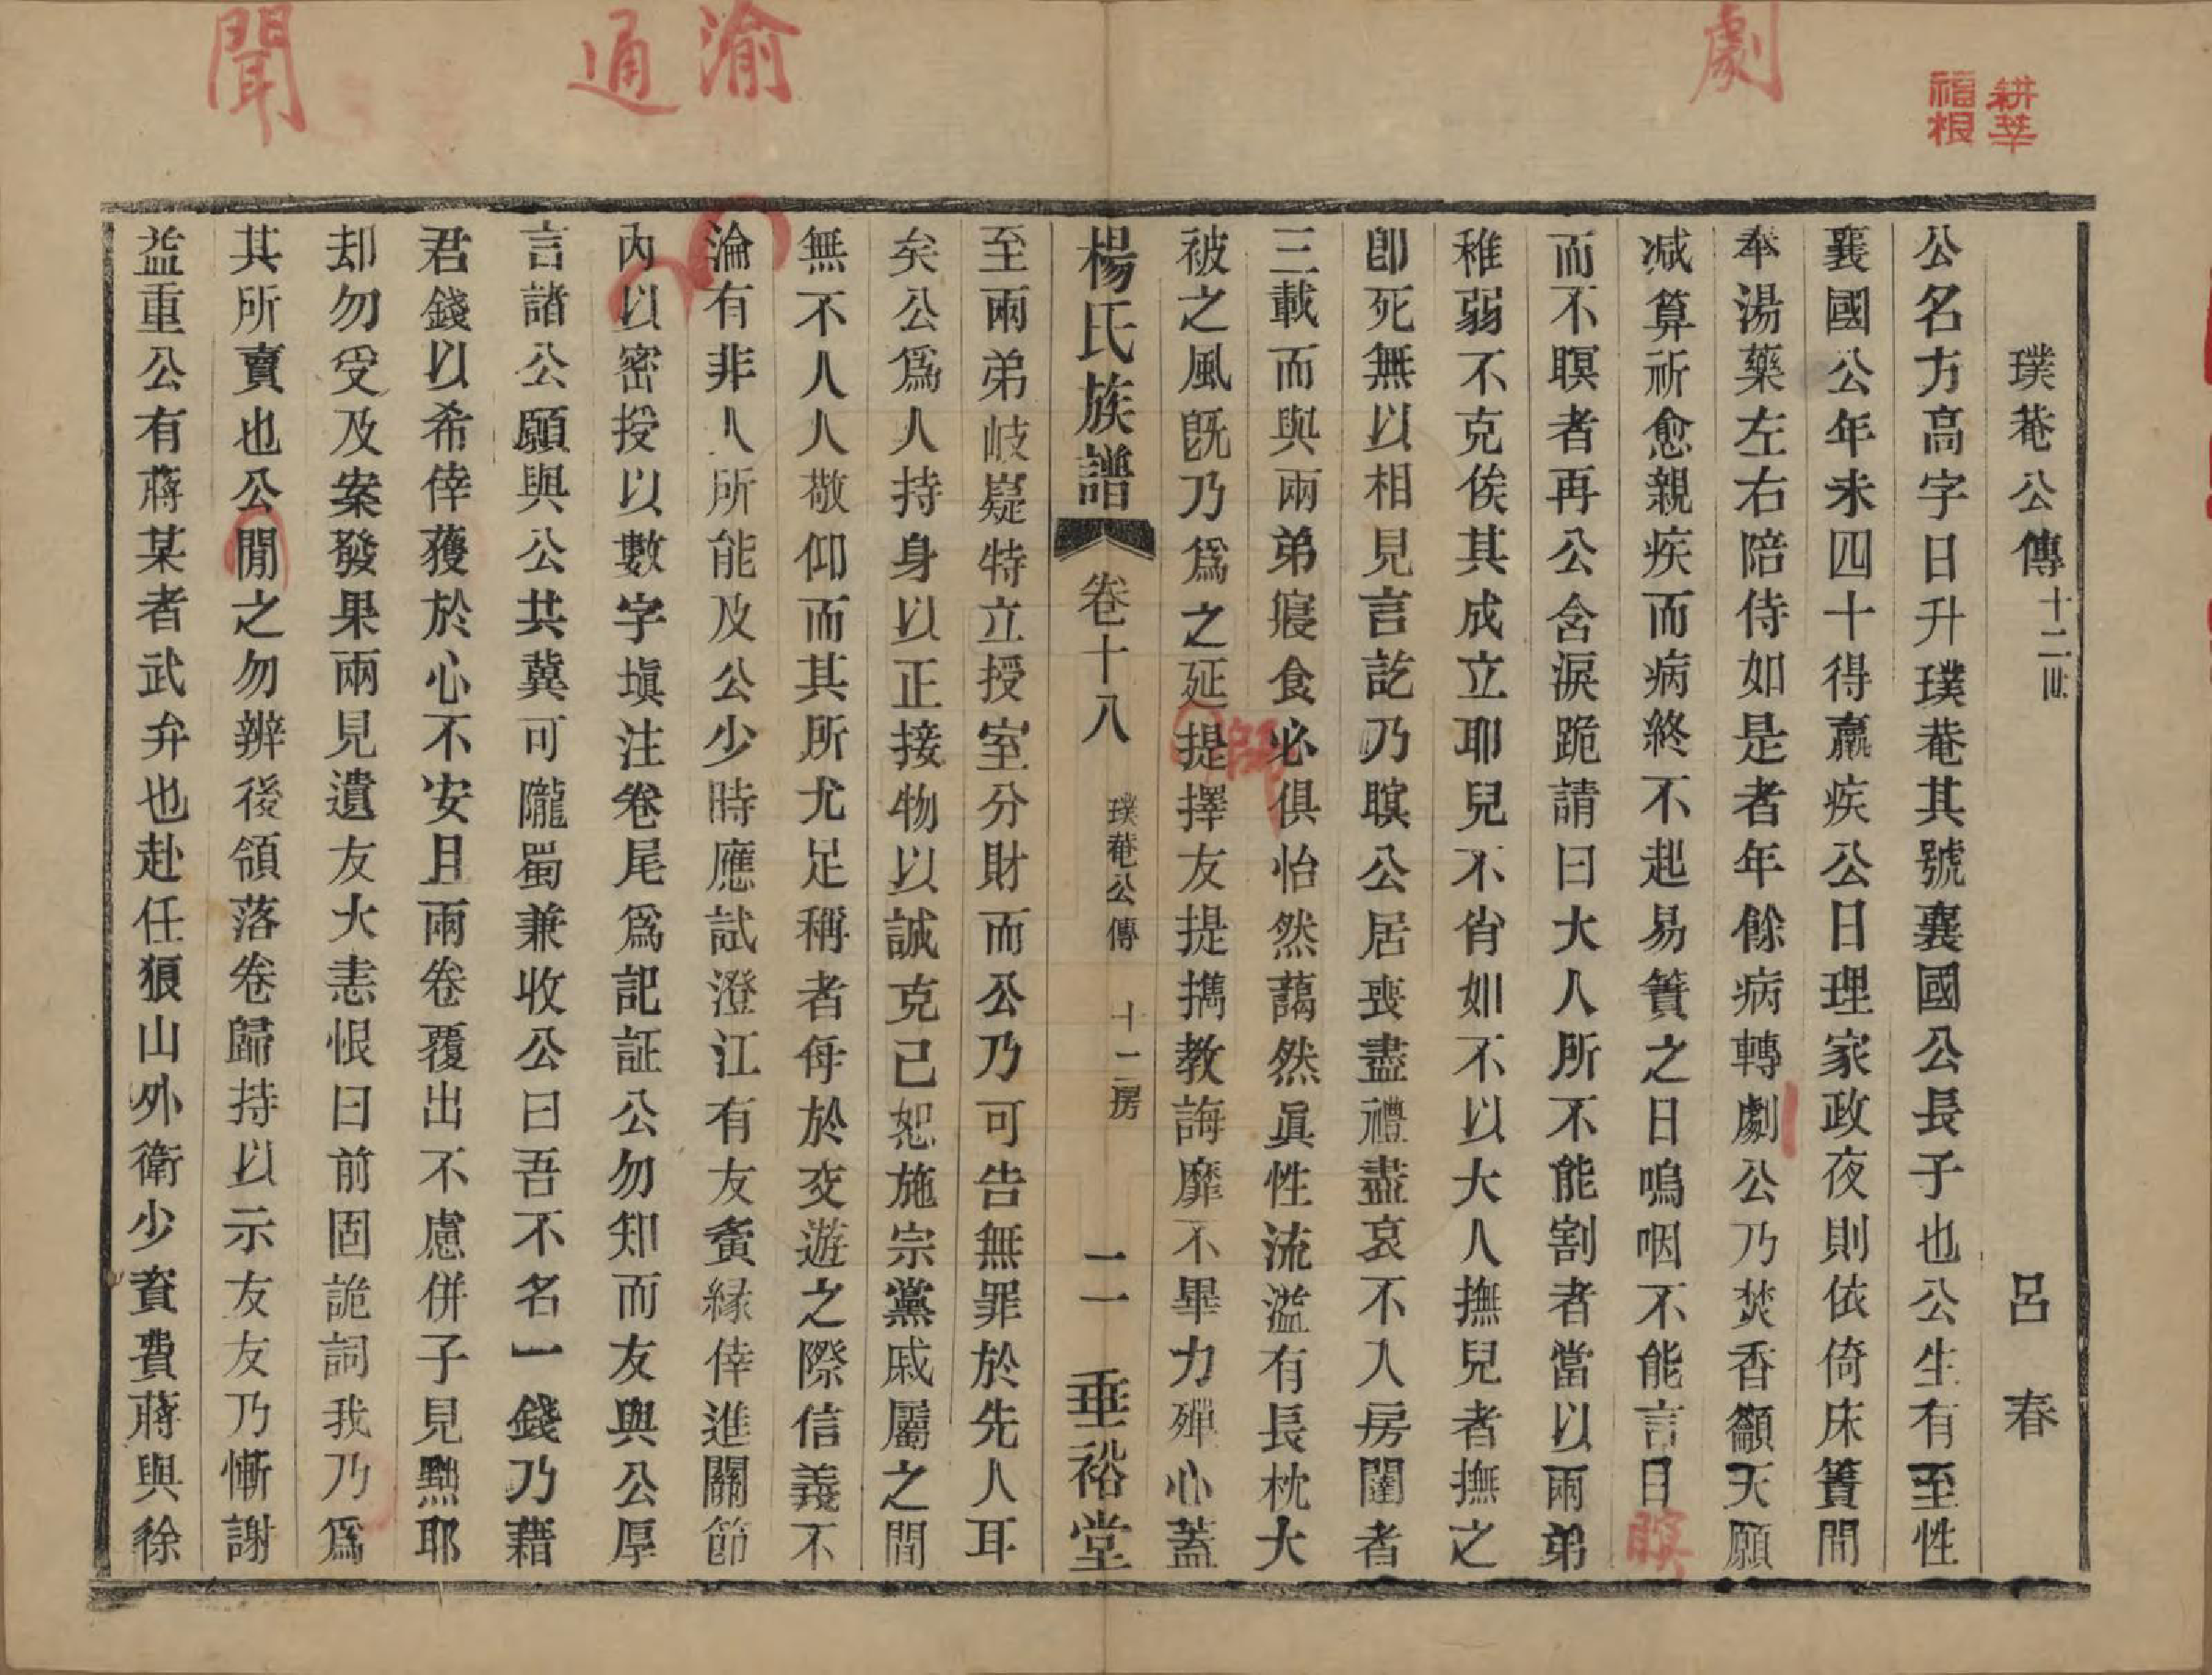 劇
渝
通
聞
耕莘
福根
璞菴公傳十二世 呂春
公名方高字日升璞菴其號襄國公長子也公生有至性
襄國公年未四十得羸疾公日理家政夜則依倚床簀間
奉湯藥左右陪侍如是者年餘病轉劇公乃焚香籲天願
减算祈愈親疾而病終不起易簀之日嗚咽不能言目瞑
而不瞑者再公含淚跪請曰大人所不能割者當以兩弟
稚弱不克俟其成立耶兒不肖如不以大人撫兒者撫之
卽死無以相見言訖乃瞑公居喪盡禮盡哀不入房闥者
三載而與兩弟寢食必俱怡然藹然眞性流溢有長枕大
被之風旣乃爲之延師擇友提携教誨靡不畢力殫心蓋
楊氏族譜 卷十八 璞菴公傳 十二房 二一 垂裕堂
至兩弟岐嶷特立授室分財而公乃可告無罪於先人耳
矣公爲人持身以正接物以誠克己恕施宗黨戚屬之間
無不人人敬仰而其所尤足稱者每於交遊之際信義不
淪有非人所能及公少時應試澄江有友夤緣倖進關節
內以密授以數字塡注卷尾爲記証公勿知而友與公厚
言諸公願與公共冀可隴蜀兼收公曰吾不名一錢乃藉
君錢以希倖獲於心不安且兩卷覆出不慮併子見黜耶
却勿受及案發果兩見遺友大恚恨曰前固詭詞我乃爲
其所賣也公閒之勿辨後領落卷歸持以示友友乃慚謝
益重公有蔣某者武弁也赴任狼山外衛少資費蔣與徐